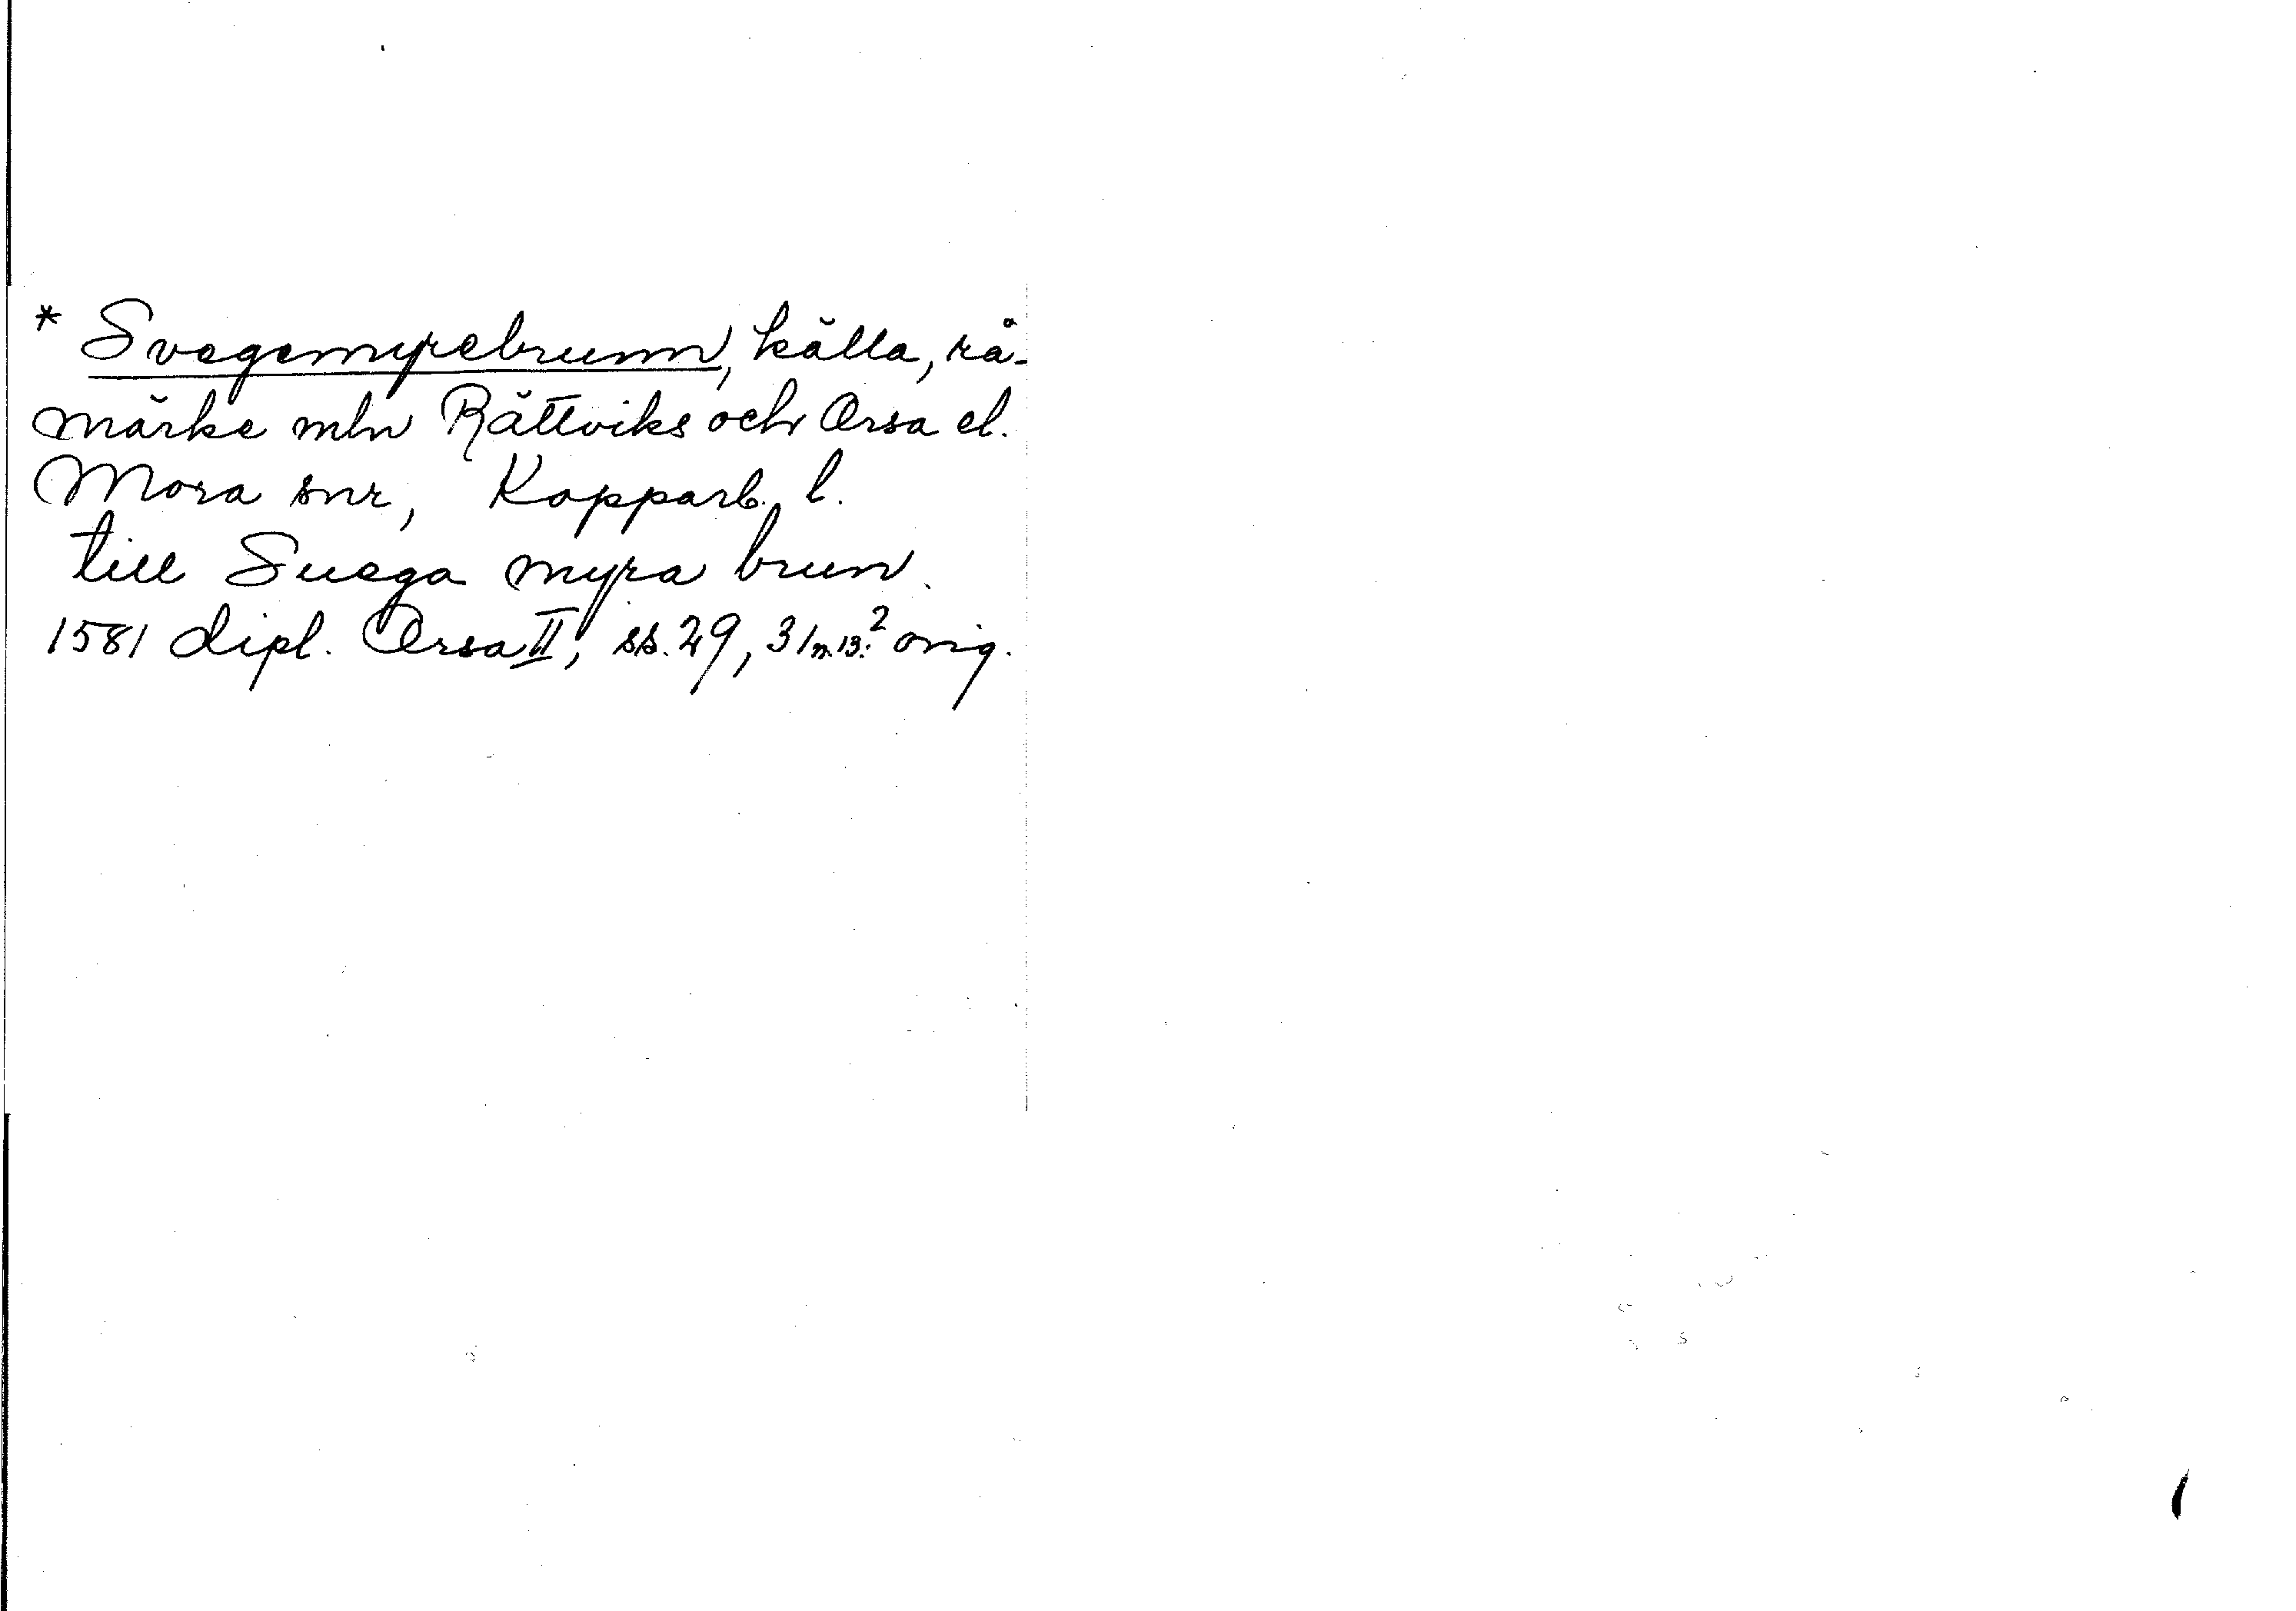 * Svegemyrebrunn, källa, rå-
märke mln Rättviks och Orsa el.
Mora snr, Kopparb. l.
till Suega myra brun.
1581 dipl. Orsa II, ss. 29, 31 orig.